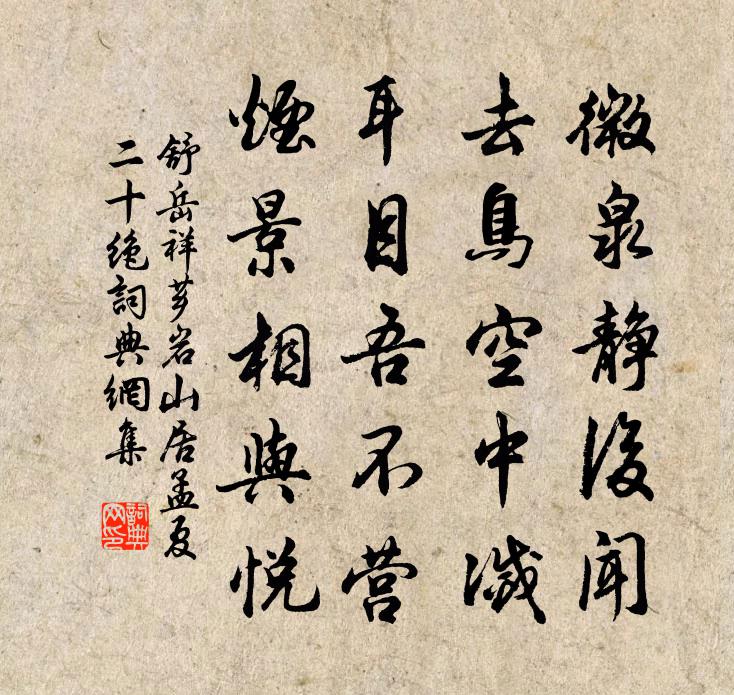 微泉静後闻
去鳥空中滅
耳目吾不营
煙景相與悦
舒岳祥芗岩山居孟夏
二十絶詞典網集
詞典網印